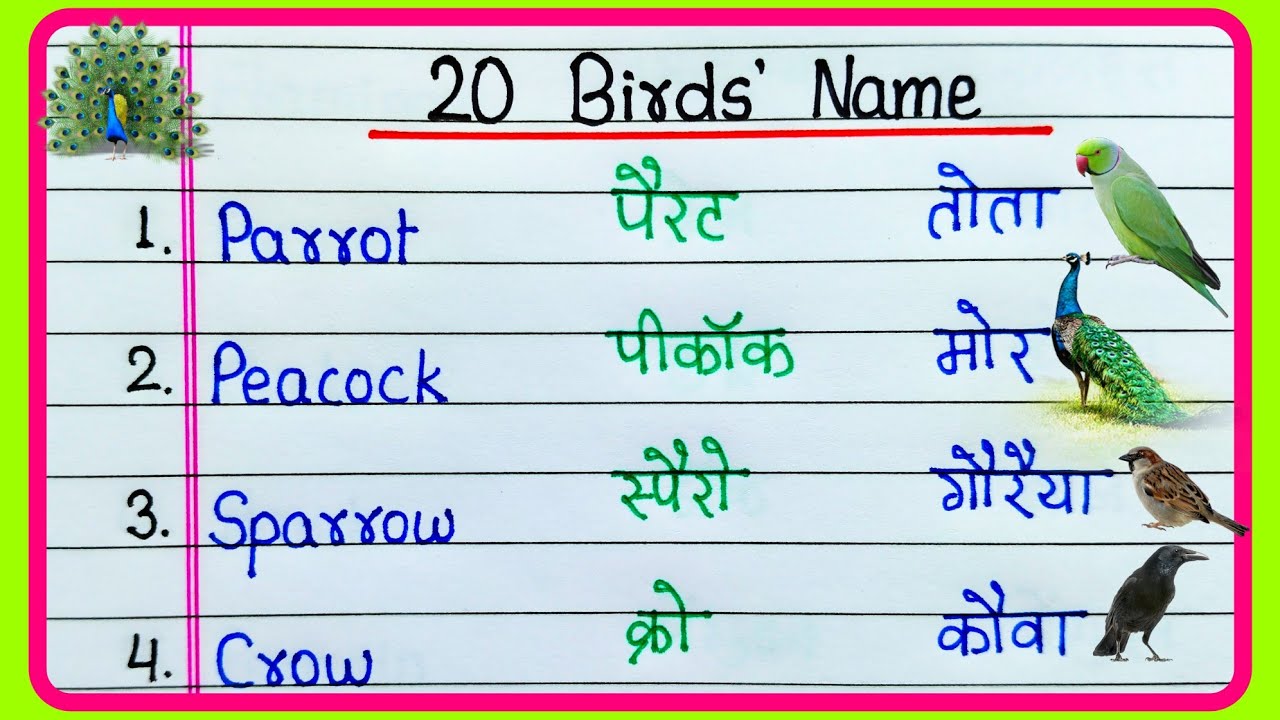 20 Birds' Name
1. Parrot पैरट तोता
2. Peacock पीकॉक मोर
3. Sparrow स्पैरो गौरैया
4. Crow क्रो कौवा